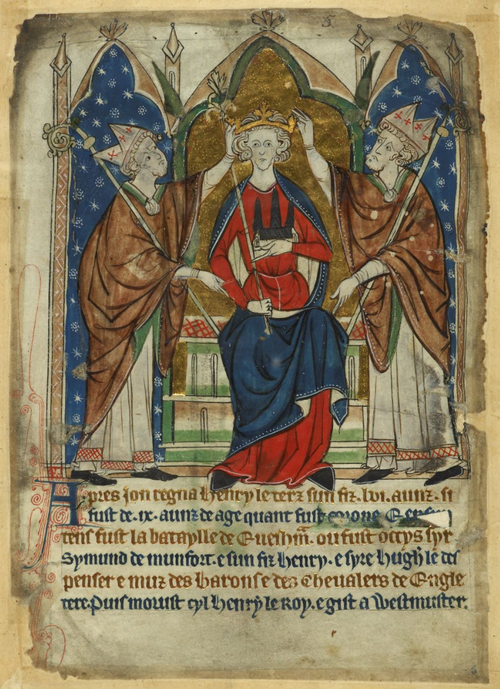 5.
Apres Jon regna Henry le terz sun fiz .lvi. aunz. si
fust de .ix. aunz de age quant fust
tens fust la bataylle de Euesham̄. ou fust occys syr
Symund de munfort. e sun fiz Henry. e syre Hugh le des
penser e muz des Barons e des Chevalers de Engle
tere. Puis morust cyl Henry le Roy. e gist a Westmuster.